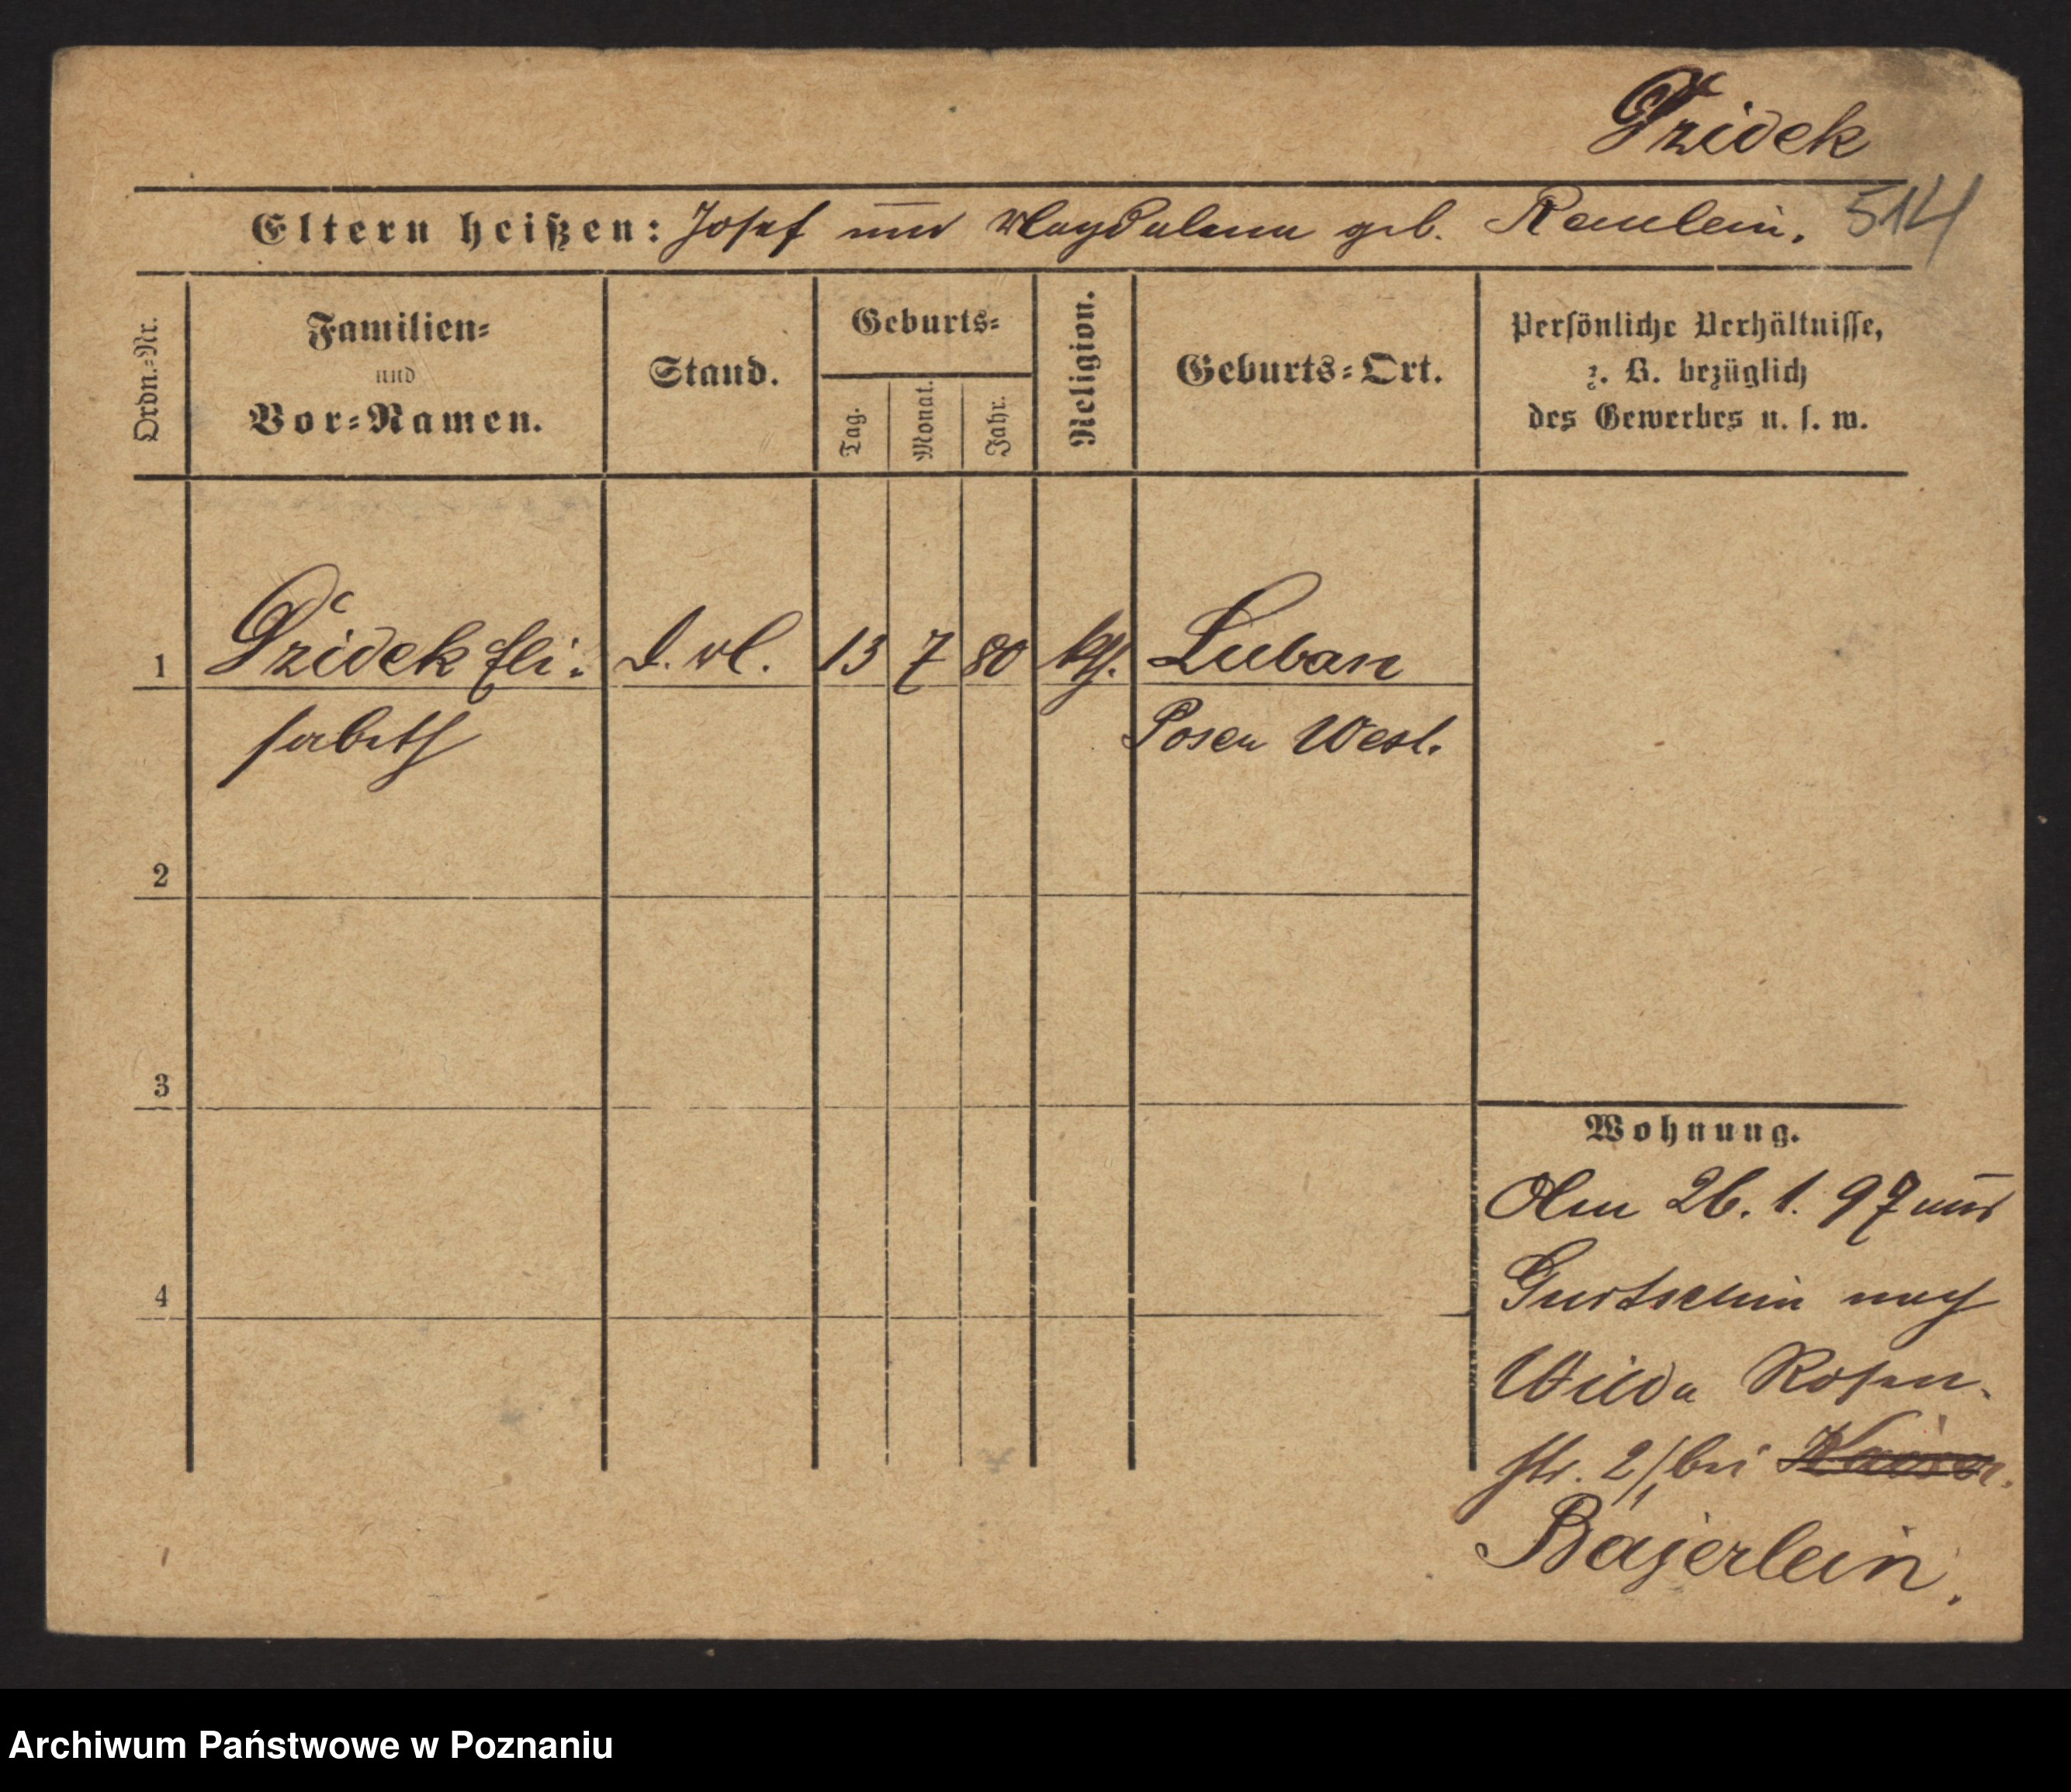 Dzidek
Eltern heißen: Josef und Magdalena geb. Remlein. 514
Ordn.=Nr.
Familien=
und
Vor=Namen.
Stand.
Geburts=
Tag.
Monat.
Jahr.
Religion.
Geburts=Ort.
Persönliche Verhältnisse,
z. B. bezüglich
des Gewerbes u. s. w.
1 Dzidek Eli= 13 7 80 kth. Luban
sabeth Posen West.
2
3
4
Wohnung.
Am 26. 1. 97 aus
Gurtschin nach
Wilda Rosen=
str. 2/1 bei
Bajerlein.
Archiwum Państwowe w Poznaniu